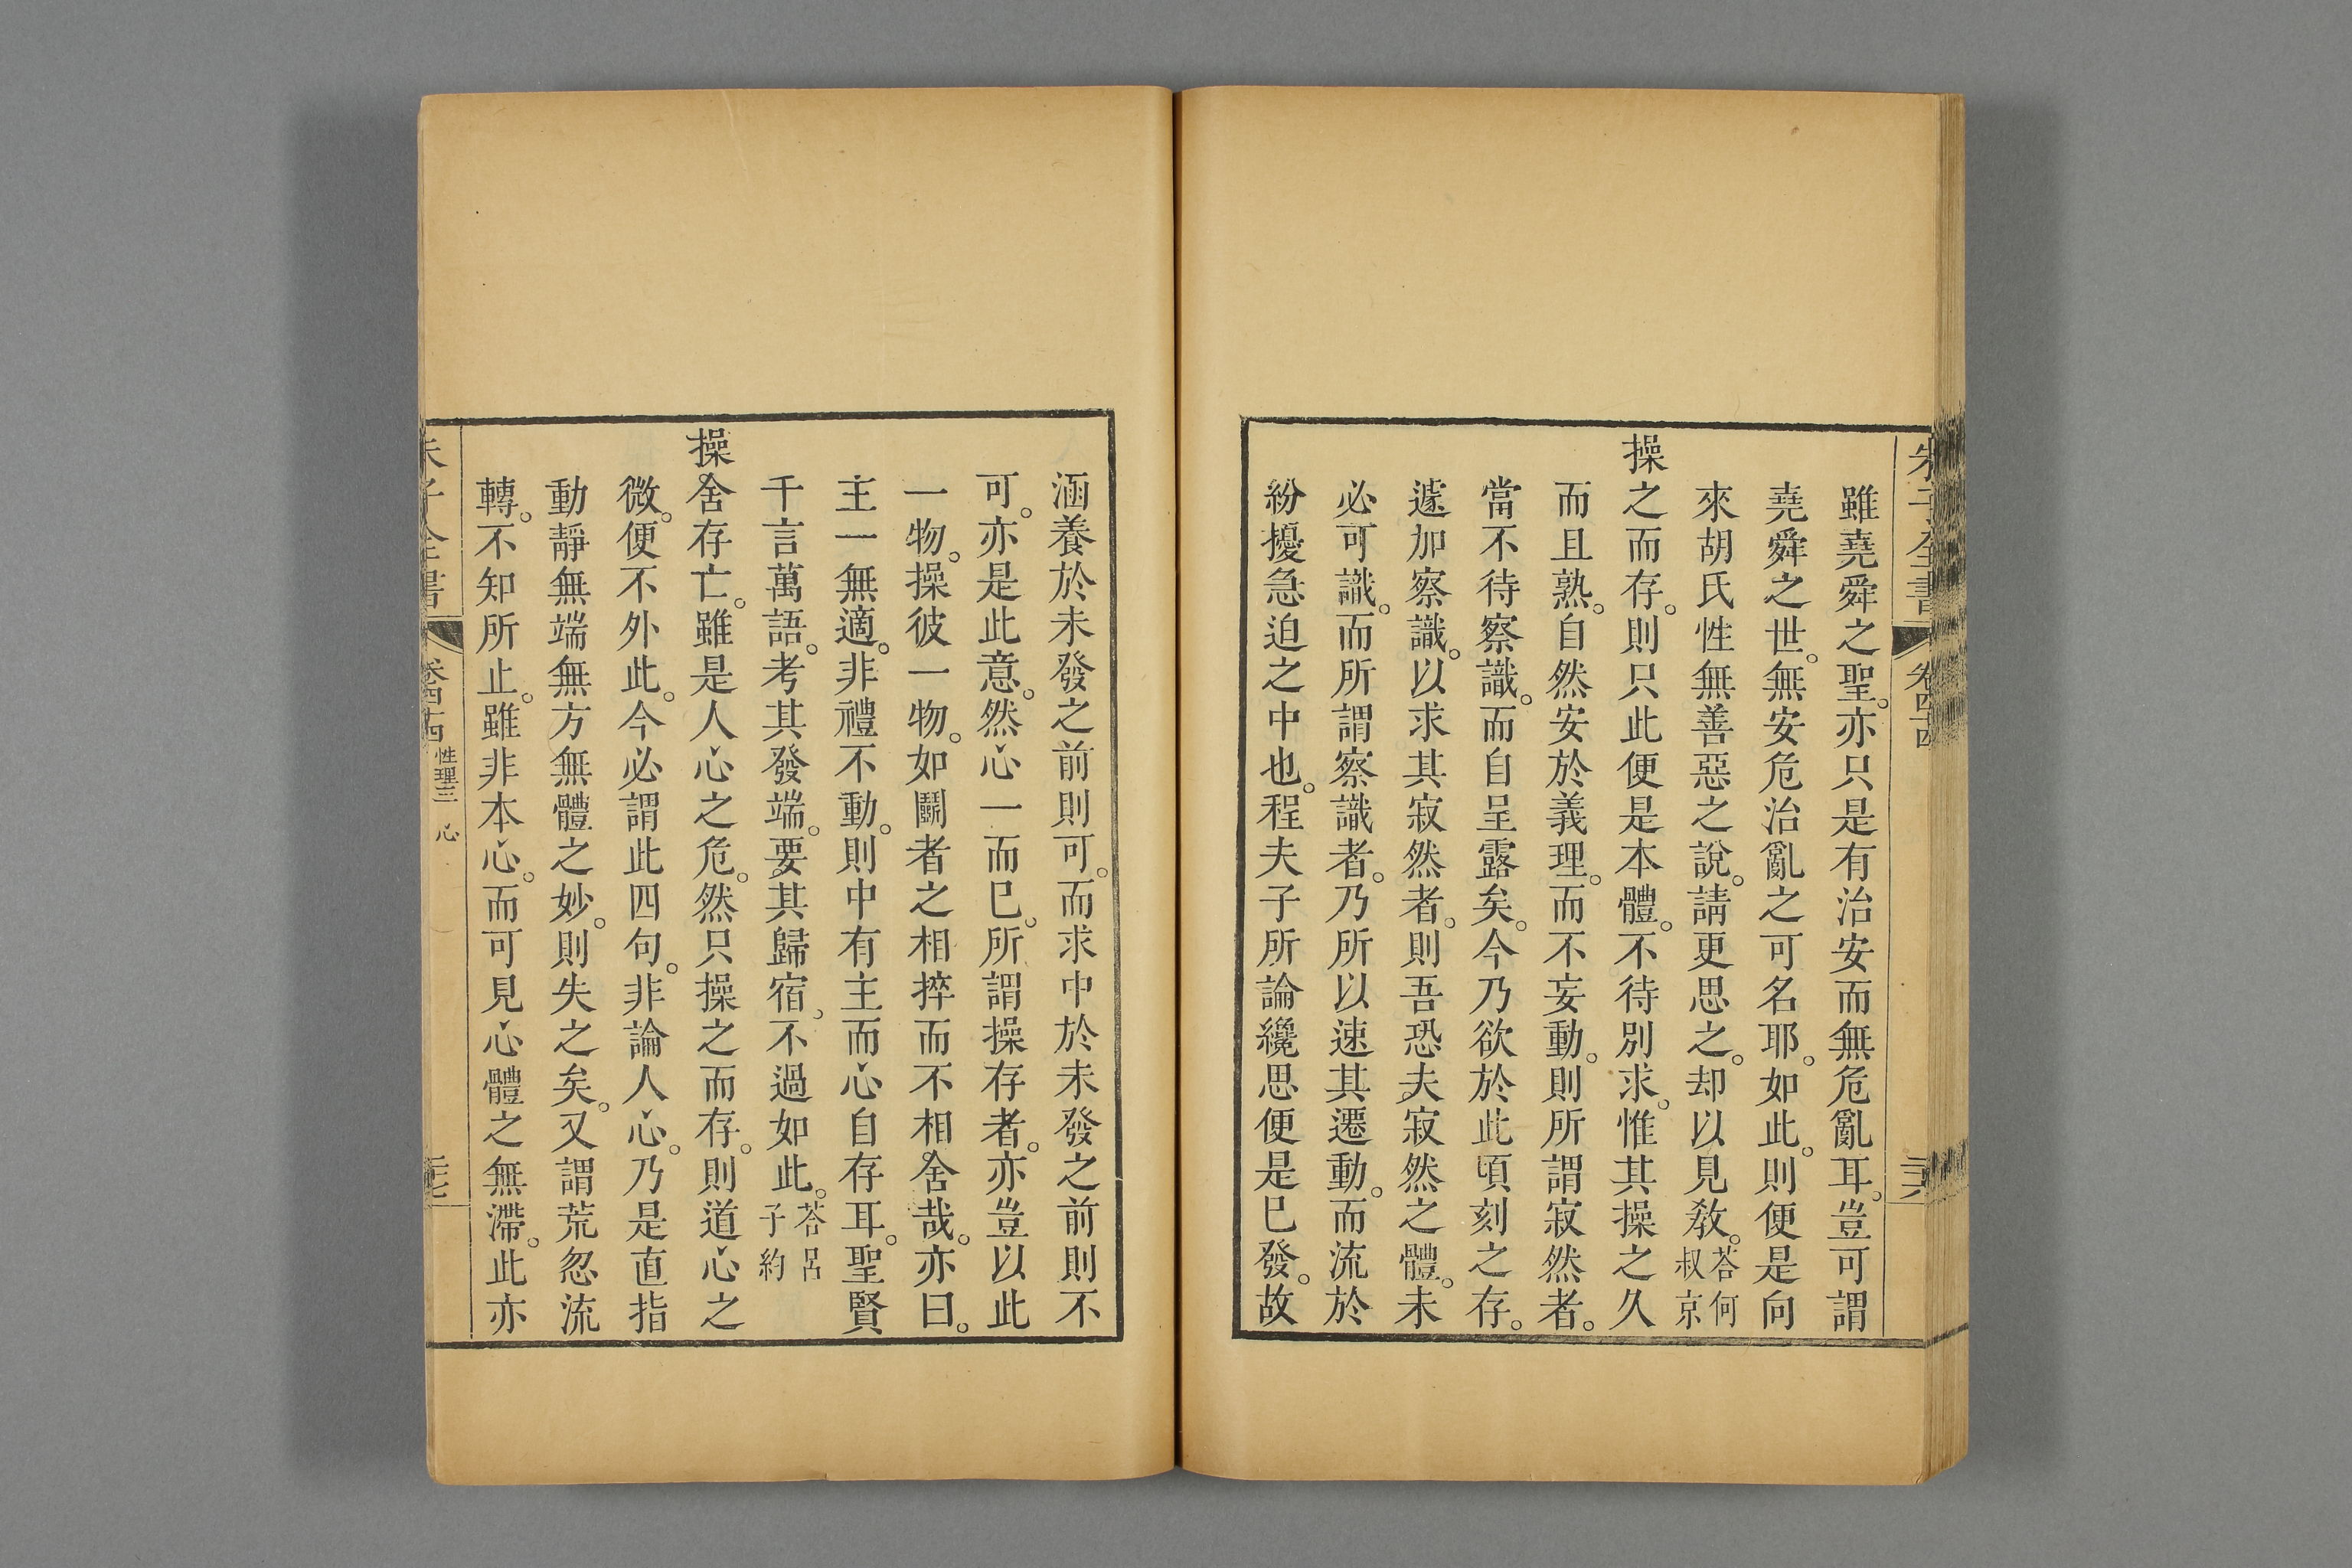 朱子全書 卷四十四 二十六
雖堯舜之聖。亦只是有治安而無危亂耳。豈可謂
堯舜之世。無安危治亂之可名耶。如此。則便是向
來胡氏性無善惡之說。請更思之。却以見敎。荅何叔京
操之而存。則只此便是本體。不待別求。惟其操之久
而且熟。自然安於義理。而不妄動。則所謂寂然者。
當不待察識。而自呈露矣。今乃欲於此頃刻之存。
遽加察識。以求其寂然者。則吾恐夫寂然之體。未
必可識。而所謂察識者。乃所以速其遷動。而流於
紛擾急迫之中也。程夫子所論纔思便是已發。故
涵養於未發之前則可。而求中於未發之前則不
可。亦是此意。然心一而已。所謂操存者。亦豈以此
一物。操彼一物。如鬭者之相捽而不相舍哉。亦曰。
主一無適。非禮不動。則中有主而心自存耳。聖賢
千言萬語。考其發端。要其歸宿。不過如此。荅呂子約
操舍存亡。雖是人心之危。然只操之而存。則道心之
微。便不外此。今必謂此四句。非論人心。乃是直指
動靜無端無方無體之妙。則失之矣。又謂荒忽流
轉。不知所止。雖非本心。而可見心體之無滯。此亦
朱子全書 卷四十四 性理三 心 二十七